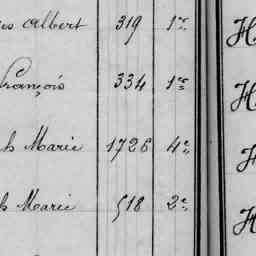 Albert 319 1re
François 334 1re
h Marie 1726 4e
h Marie 518 2e